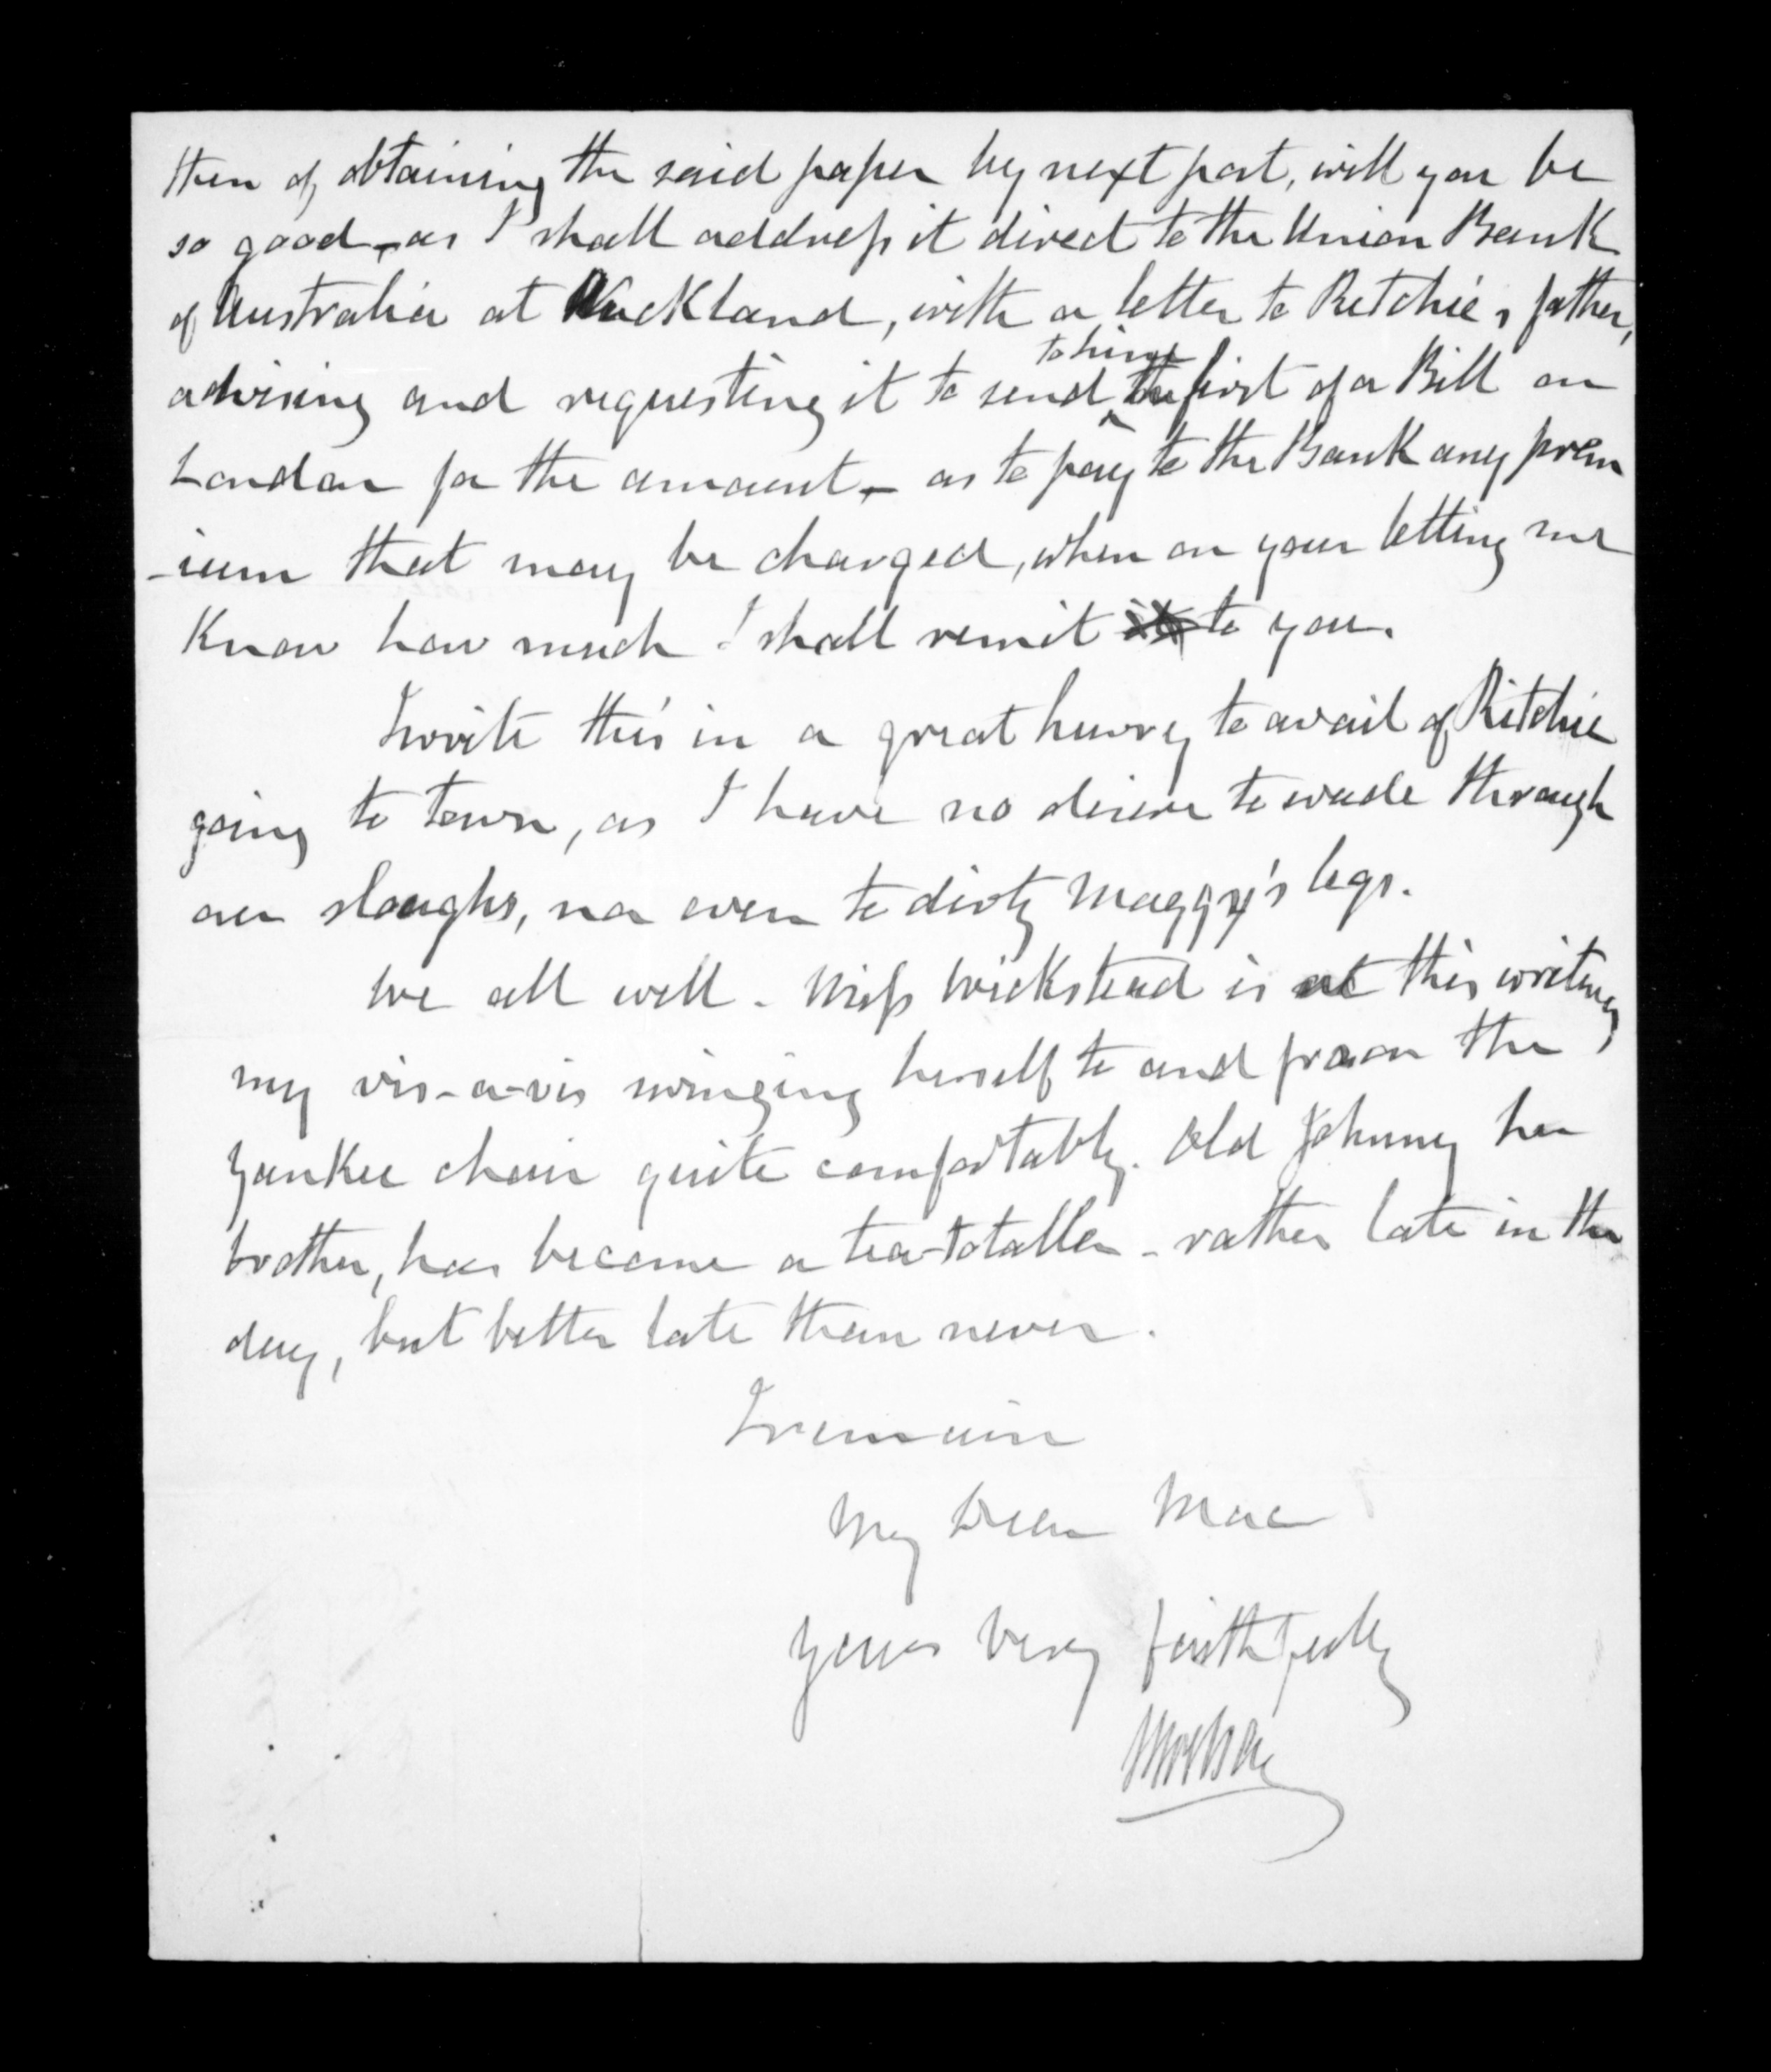 then of obtaining the said paper by next post, will you be
so good - as I shall address it direct to the Union Bank
of Australia at Auckland, with a letter to Ritchie's father,
to him
advising and requesting it to send the first of a Bill on
London for the amount - as to pay to the Bank any prem
-ium that may be charged, when on your letting me
know how much I shall remit it to you.
I write this in a great hurry to avail of Ritchie
going to town, as I have no desire to wade through
our sloughs, nor even to dirty Maggy's legs.
We all well. Miss Wickstead is at this writing
my vis-a-vis swinging herself to and fro on the
Yankee chair quite comfortably. Old Johnny her
brother, has become a tea-totaller - rather late in the
day, but better late than never.
I remain
My Dear Mac
Yours very faithfully